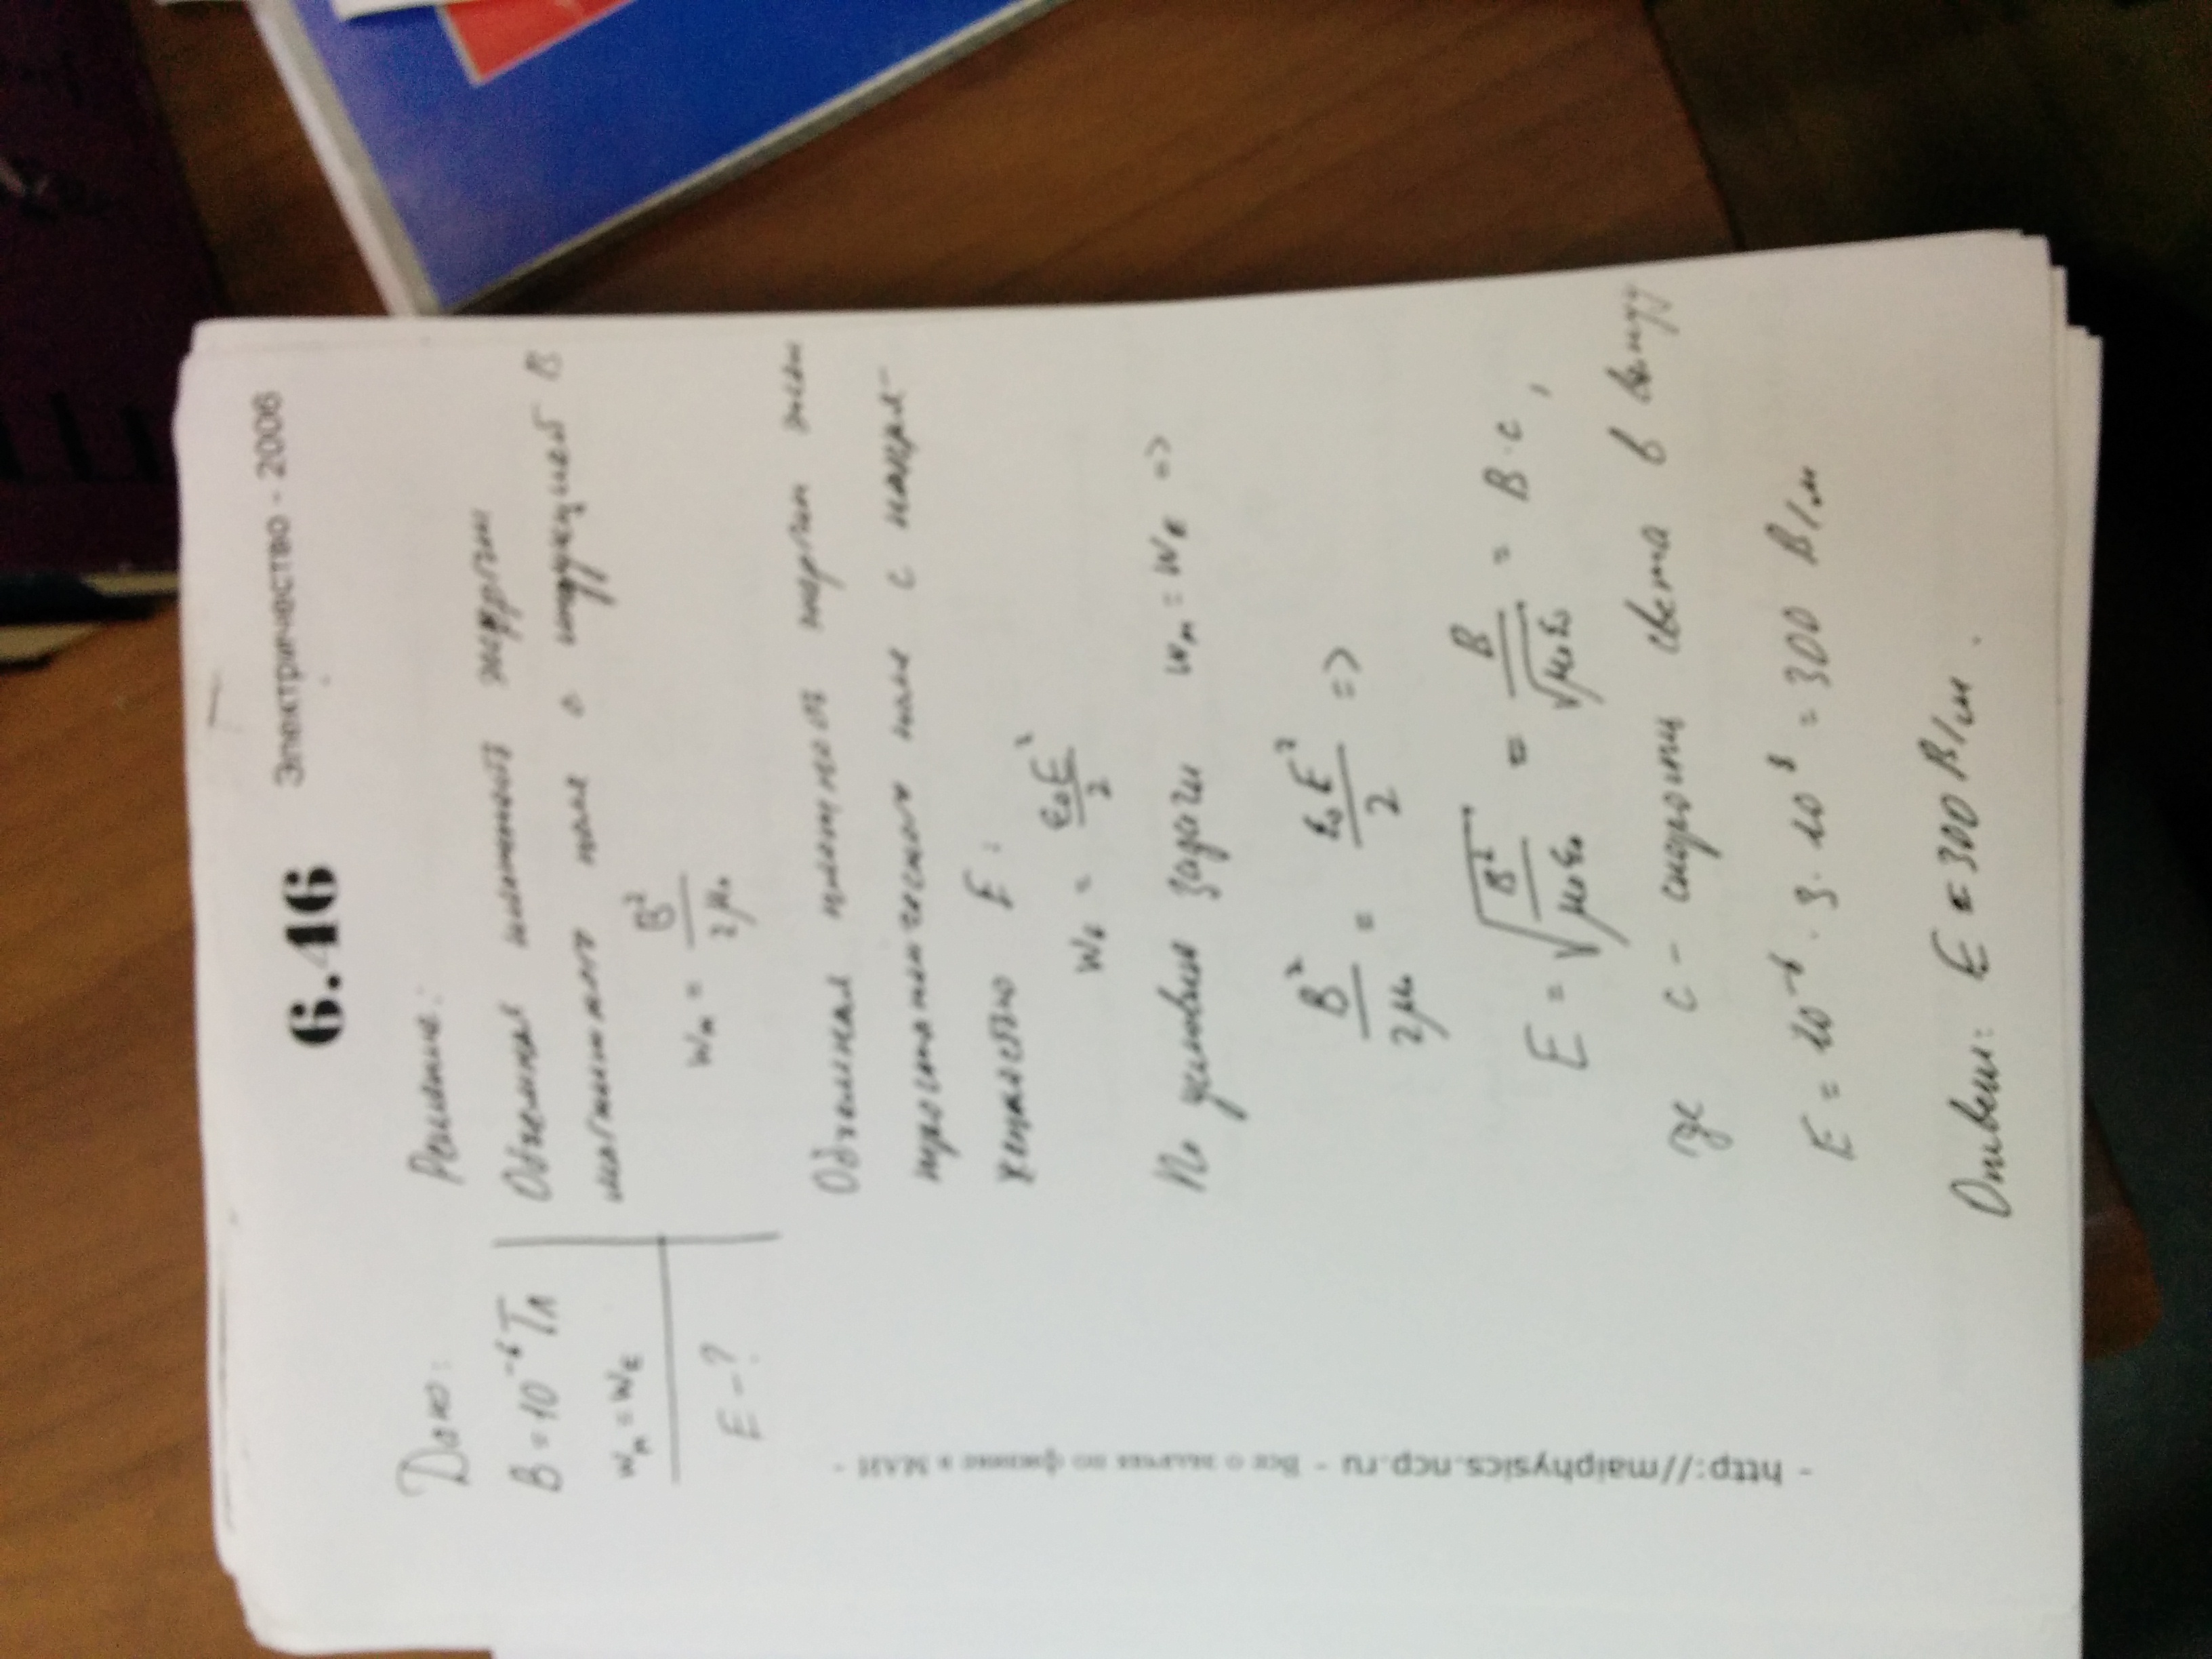 6.46 Электричество - 2006
Дано: Решение:
B = 10⁻⁶ Тл Объемная плотность энергии
wм = wE магнитного поля с индукцией B
E - ?
wм = B²/2μ₀
Объемная плотность энергии
поля с напря-
женностью E:
wE = ε₀E²/2
По условию задачи wм = wE =>
B²/2μ₀ = ε₀E²/2 =>
E = √(B²/μ₀ε₀) = B/√μ₀ε₀ = B·c,
где c - скорость света в
E = 10⁻⁶ · 3 · 10⁸ = 300 В/м
Ответ: E = 300 В/м.
- http://maiphysics.ncp.ru - Все о задачах по физике в МАИ -